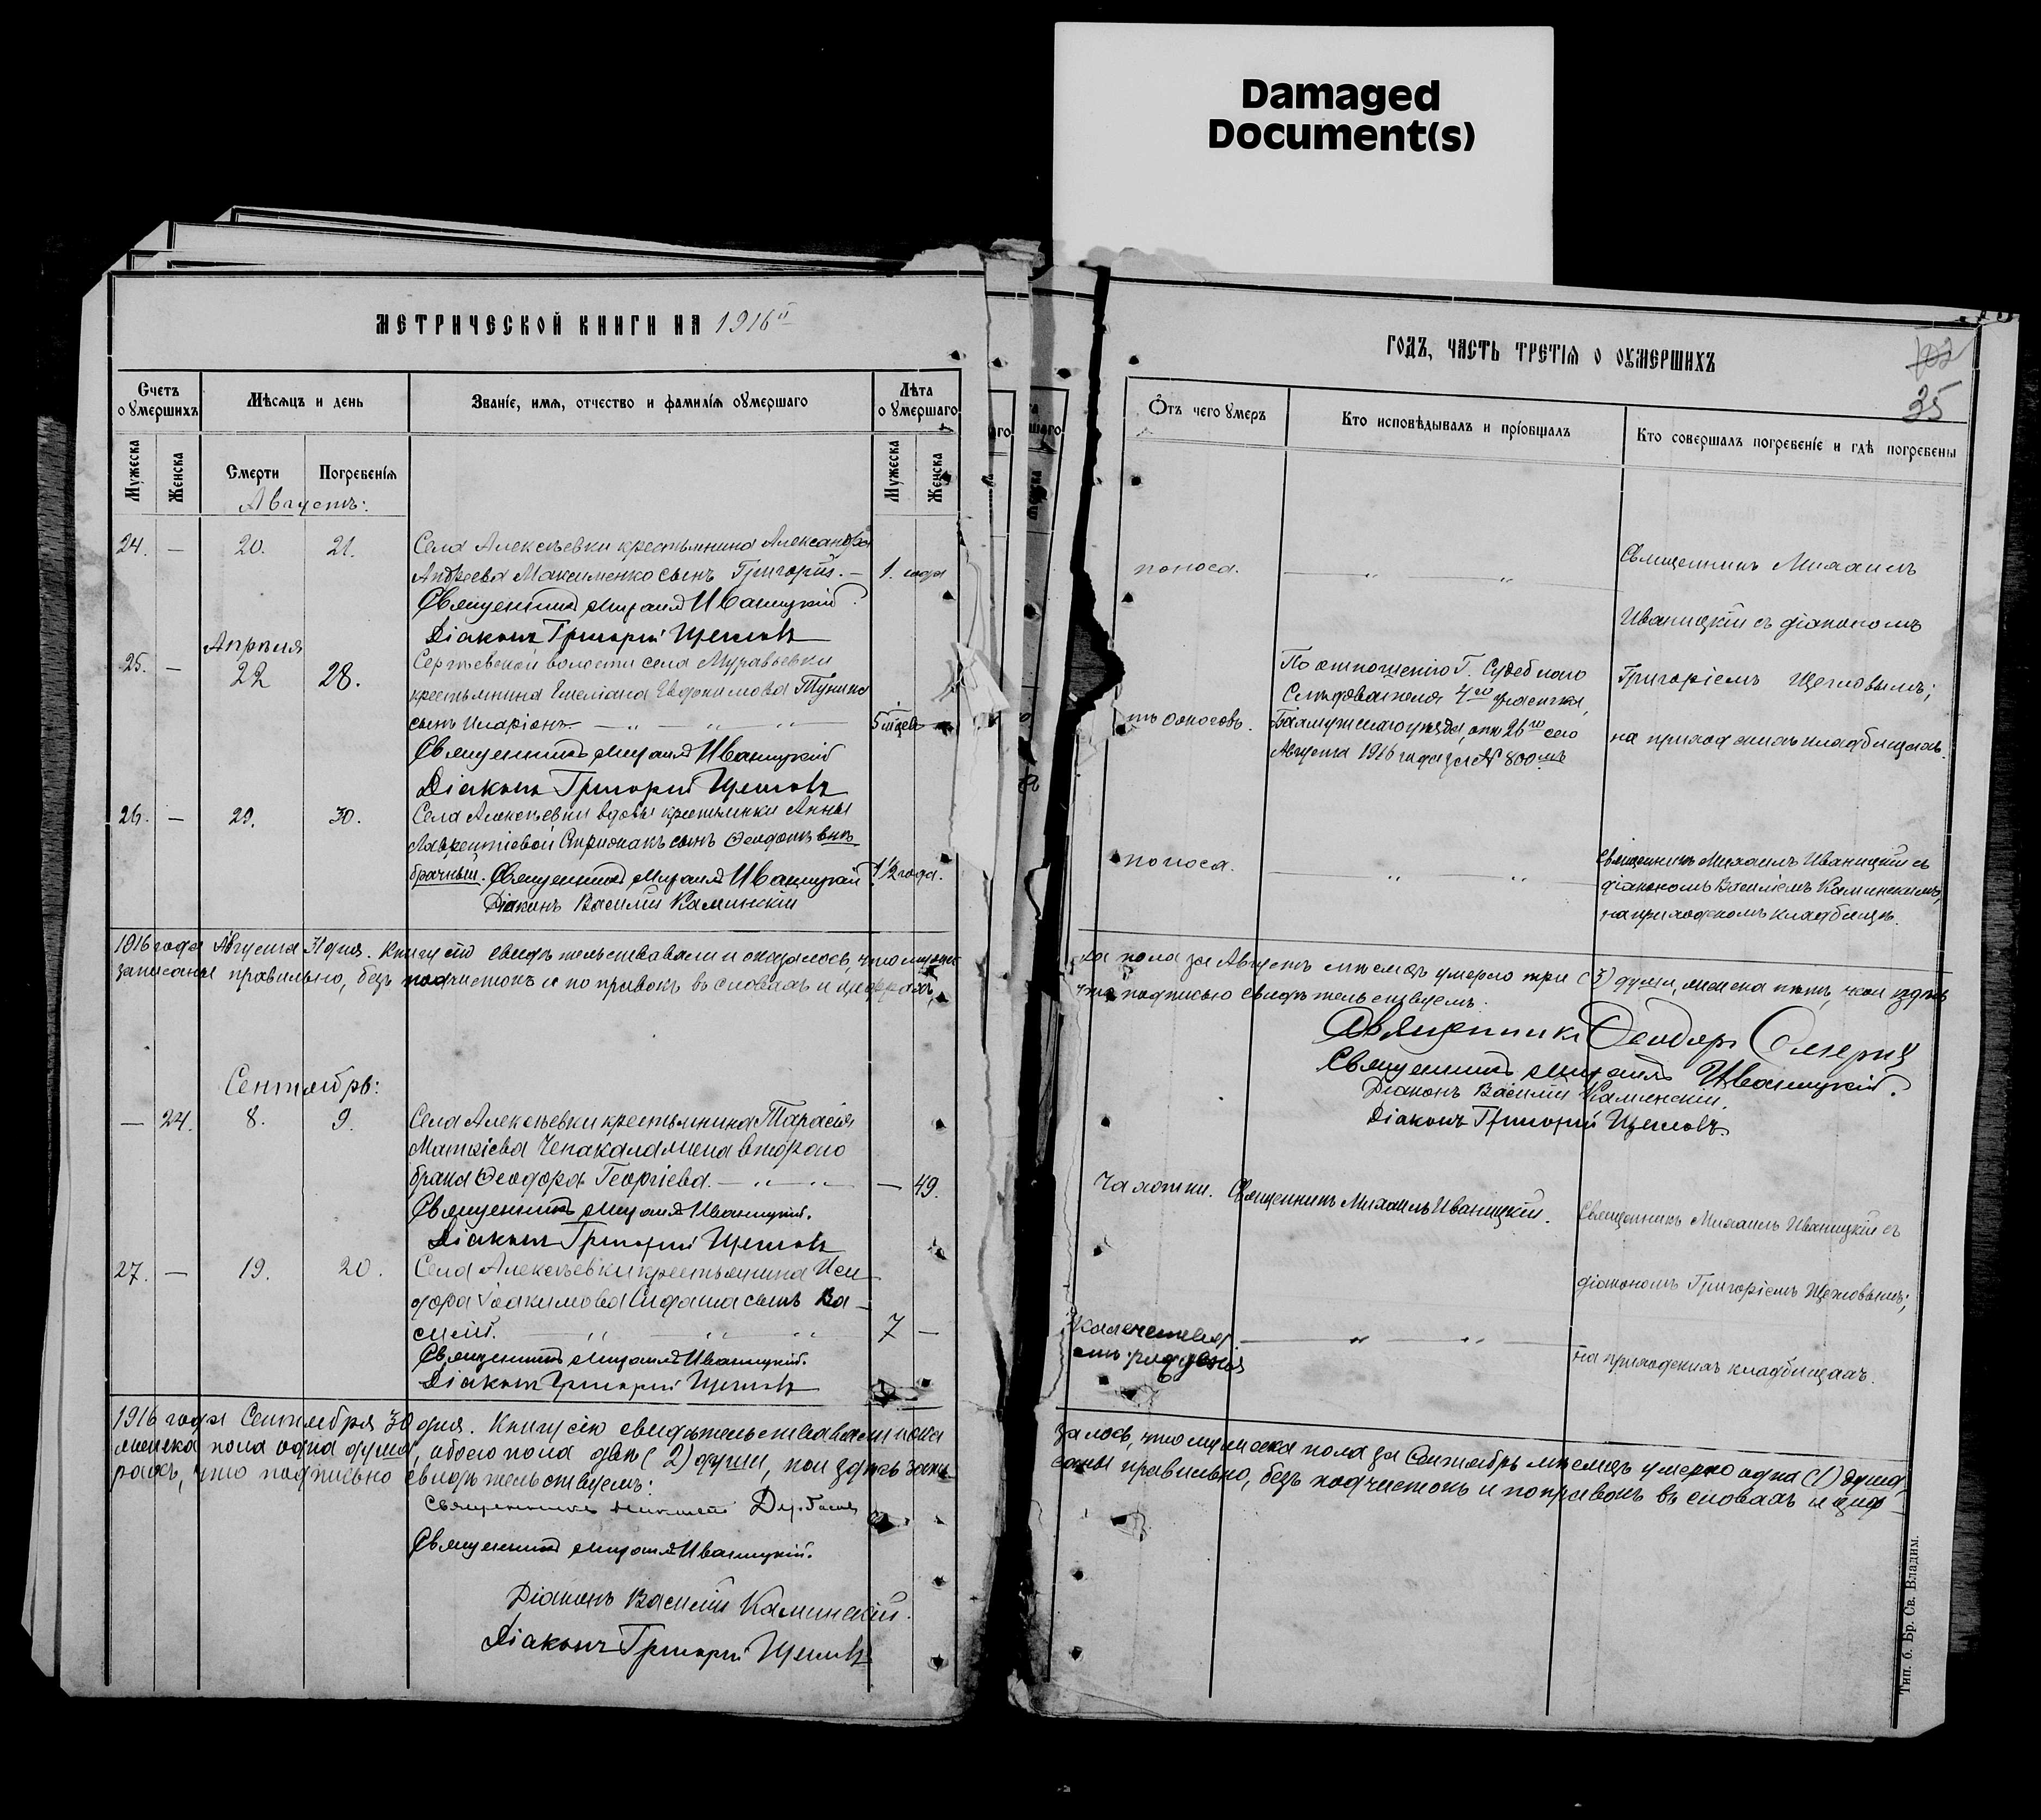 Damaged
Document(s)
МЕТРИЧЕСКОЙ КНИГИ НА 1916й
Счетъ о умершихъ
Мѣсяцъ и день
Званіе, имя, отчество и фамилія оумершаго
Лѣта о умершаго
Мужеска
Женска
Смерти
Погребенія
Мужеска
Женска
Августъ:
24. — 20. 21. Села Алексѣевки крестьянина Александра
Андреева Максименко сынъ Григорій. — 1. года
Священникъ Михаилъ Иваницкій.
Діаконъ Григорій Щегловъ
Апрѣля
25. — 22 28. Сергѣевской волости села Муравьевки
крестьянина Емеліана Евдокимова
сынъ Иларіонъ — „ — „ — „ 5 мѣсяц. —
Священникъ Михаилъ Иваницкій
Діаконъ Григорій Щегловъ
26. — 29. 30. Села Алексѣевки вдовы крестьянки Анны
Лаврентіевой сынъ Ѳеодотъ внѣ-
брачный. Священникъ Михаилъ Иваницкій 1½ года.
Діаконъ Василій Каминскій
1916 года Августа 31 дня. Книгу сію свидѣтельствовали и оказалось, что мужес
записаны правильно, безъ подчистокъ и поправокъ въ словахъ и цифрахъ,
Сентябрь:
— 24. 8. 9. Села Алексѣевки крестьянина Тарасія
Матѳіева Чепакала жена второго
брака Ѳеодора Георгіева. — „ — „ — 49.
Священникъ Михаилъ Иваницкій.
Діаконъ Григорій Щегловъ
27. — 19. 20. Села Алексѣевки крестьянина Иси-
дора Іоакимова сынъ Ва-
силій. — „ — „ — „ 7 —
Священникъ Михаилъ Иваницкій.
Діаконъ Григорій Щегловъ
1916 года Сентября 30 дня. Книгу сію свидѣтельствовали и ока
женска пола одна душа, обоего пола двѣ (2) души, кои здѣсь запи
рахъ, что подписью свидѣтельствуемъ:
Священникъ
Священникъ Михаилъ Иваницкій.
Діаконъ Василій Каминскій.
Діаконъ Григорій Щегловъ
ГОДЪ, ЧАСТЬ ТРЕТІЯ О ОУМЕРШИХЪ
102
35
Отъ чего умеръ
Кто исповѣдывалъ и пріобщалъ
Кто совершалъ погребеніе и гдѣ погребены
поноса. — „ — „ — Священникъ Михаилъ
Иваницкій съ діакономъ
Григоріемъ Щегловымъ;
на приходскихъ кладбищахъ.
По отношенію Г. Судебнаго
Слѣдователя 4го участка,
Бахмутскаго уѣзда, отъ 26го сего
Августа 1916 года за № 800мъ
поноса. — „ — „ — Священникъ Михаилъ Иваницкій съ
діакономъ Василіемъ Каминскимъ,
на приходскомъ кладбищѣ.
ка пола за Августъ мѣсяцъ умерло три (3) души, женска нѣтъ, кои здѣсь
что подписью свидѣтельствуемъ.
Священникъ Ѳеодоръ
Священникъ Михаилъ Иваницкій.
Діаконъ Василій Каминскій.
Діаконъ Григорій Щегловъ
Чахотки. Священникъ Михаилъ Иваницкій. Священникъ Михаилъ Иваницкій съ
діакономъ Григоріемъ Щегловымъ;
на приходскихъ кладбищахъ.
Калечества
отъ рожденія — „ — „ —
залось, что мужеска пола за Сентябрь мѣсяцъ умерло одна (1) душа,
саны правильно, безъ подчистокъ и поправокъ въ словахъ и циф-
Тип. б. Бр. Св. Владим.